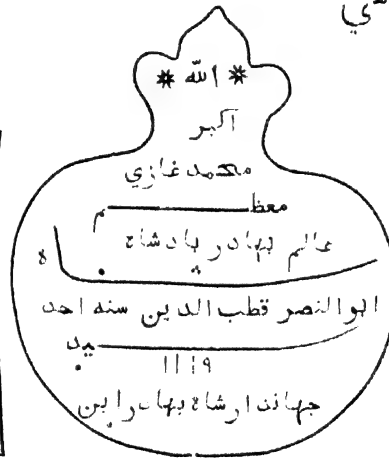 ي
* الله *
اكبر
محمد غازي
معظـــــــم
عالم بهادر بادشاه
ه
ابو النصر قطب الدين سنه احد
سيد
١١١٩
جهاندار شاه بهادر ابن